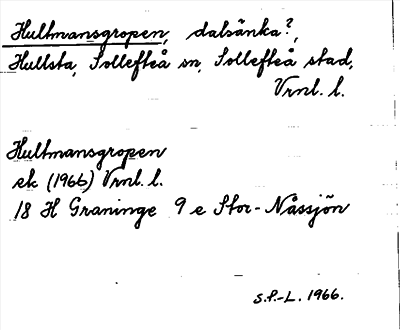 Hultmansgropen, dalsänka?,
Hullsta, Sollefteå sn, Sollefteå stad,
Vrnl. l.
Hultmansgropen
ek (1966) Vrnl. l.
18 H Graninge 9 e Stor-Nåssjön
S.P.-L. 1966.